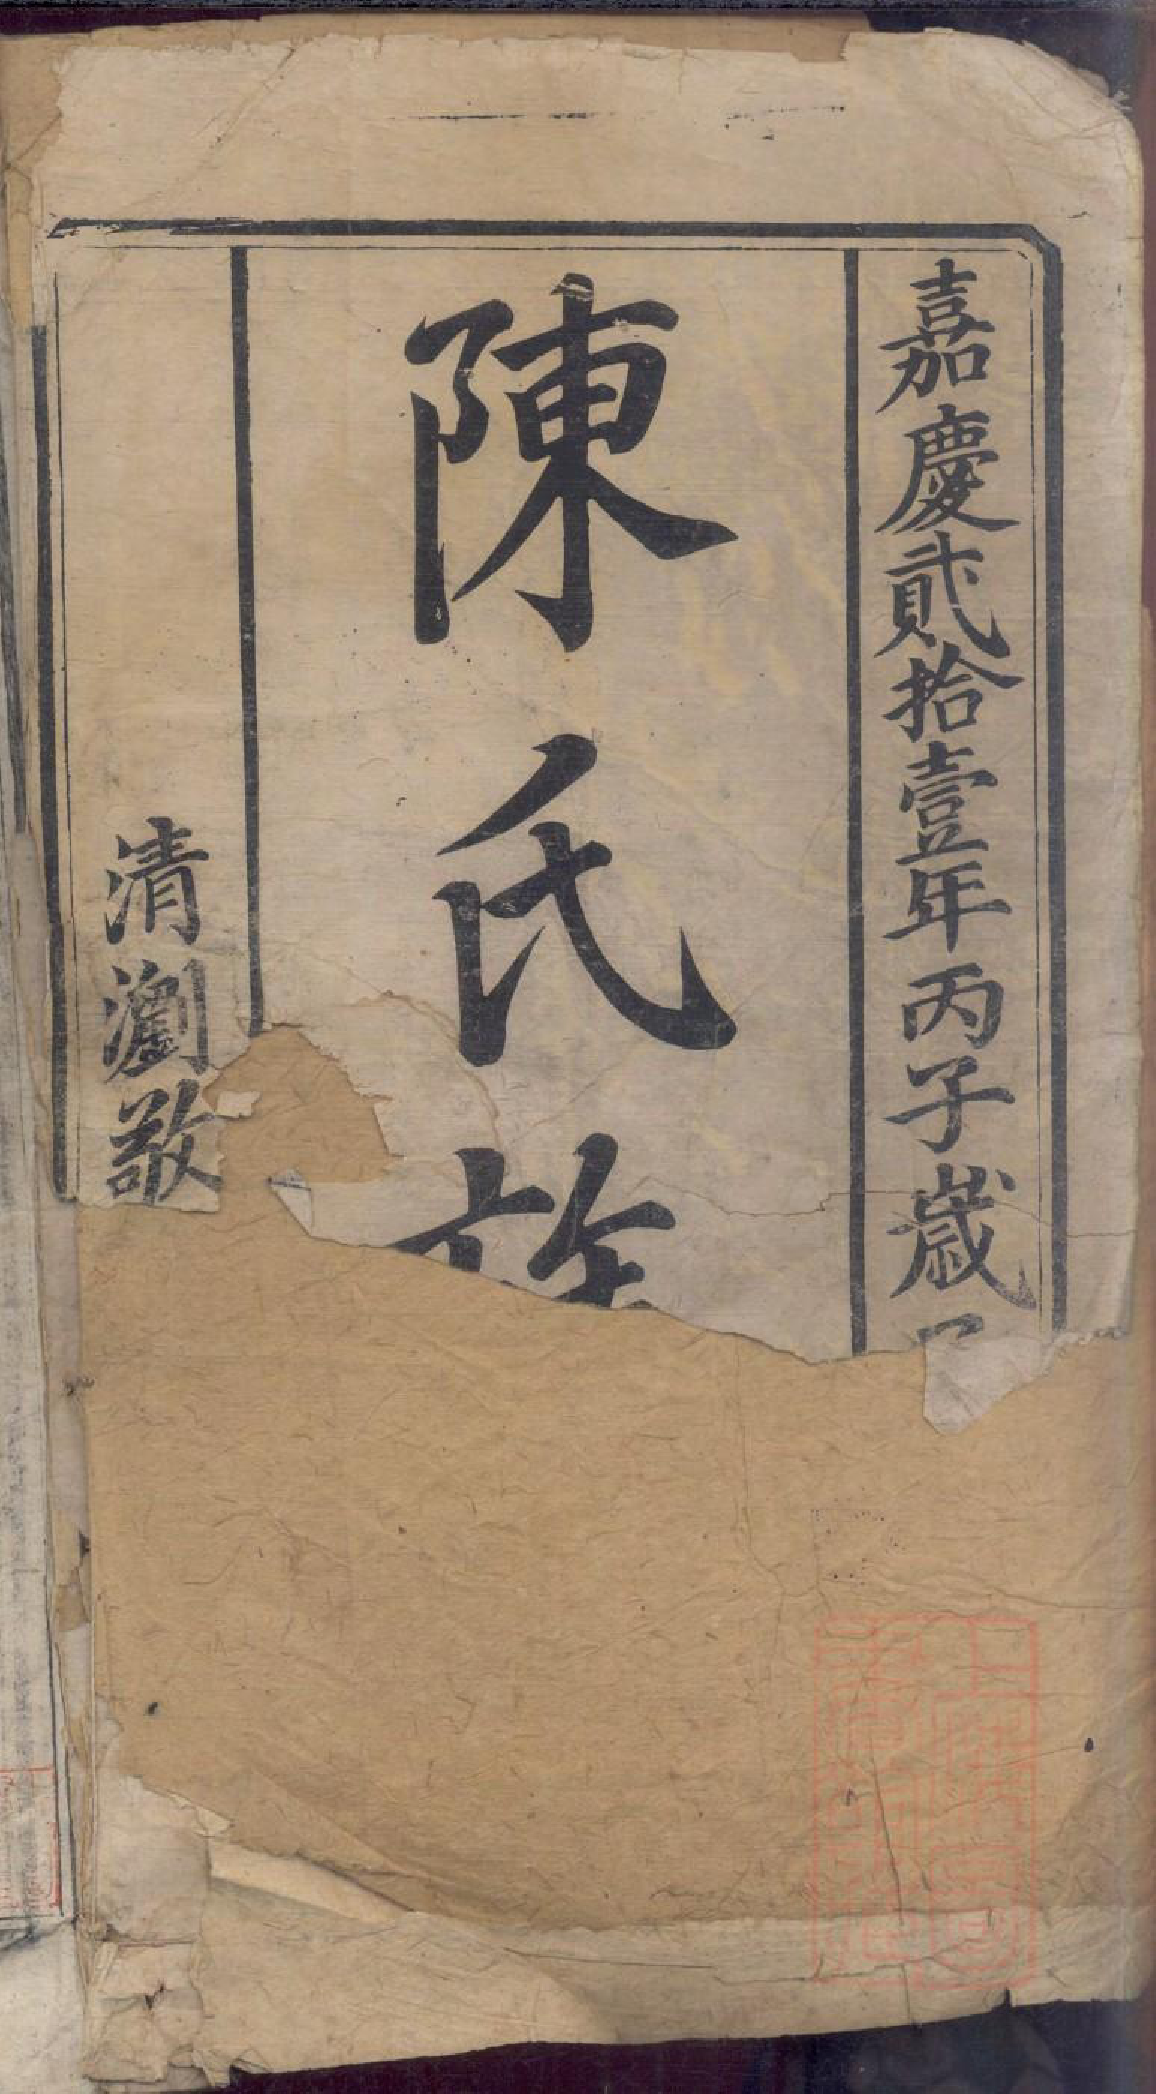 嘉慶貳拾壹年丙子歲
陳氏族
清瀏敬